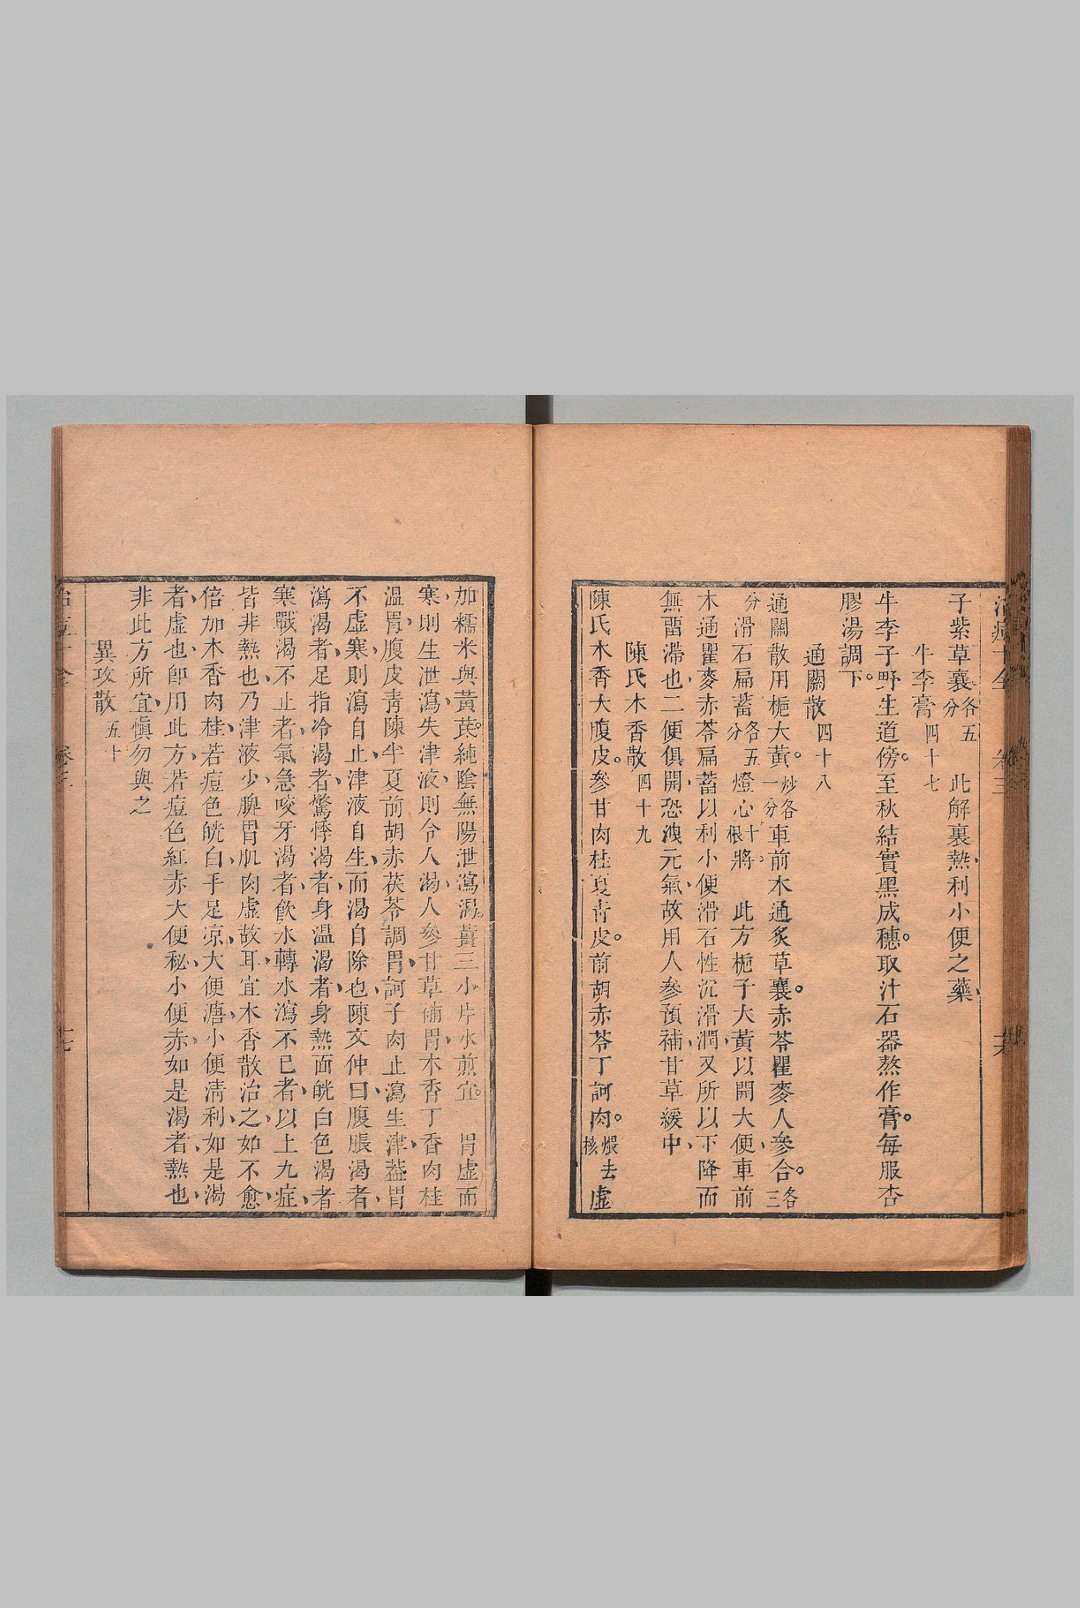 子紫草襄各五分 此解裏熱利小便之藥
牛李膏四十七
牛李子野生道傍。至秋結實黑成穗。取汁石器熬作膏。每服杏
膠湯調下
通關散四十八
通關散用梔大黃。炒各一分車前木通炙草襄。赤苓瞿麥人參合。各三
分滑石扁蓄各五分燈心十根將。 此方梔子大黃以開大便車前
木通瞿麥赤苓扁蓄以利小便滑石性沉滑澗又所以下降而
無畱滯也二便俱開恐洩元氣故用人參預補甘草緩中
陳氏木香散四十九
陳氏木香大腹皮。參甘肉桂夏青皮。前胡赤苓丁訶肉。煨去核虛
加糯米與黃芪。純陰無陽泄瀉渴。薑三小片水煎宜。 胃虛而
寒則生泄瀉失津液則令人渴人參甘草補胃木香丁香肉桂
溫胃腹皮青陳半夏前胡赤茯苓調胃訶子肉止瀉生津益胃
不虛寒則瀉自止津液自生而渴自除也陳文仲曰腹脹渴者
瀉渴者足指冷渴者驚悸渴者身溫渴者身熱面㿠白色渴者
寒戰渴不止者氣急咬牙渴者飲水轉水瀉不已者以上九症
皆非熱也乃津液少脾胃肌肉虛故耳宜木香散治之如不愈
倍加木香肉桂若痘色㿠白手足凉大便溏小便淸利如是渴
者虛也卽用此方若痘色紅赤大便秘小便赤如是渴者熱也
非此方所宜愼勿與之
異攻散五十